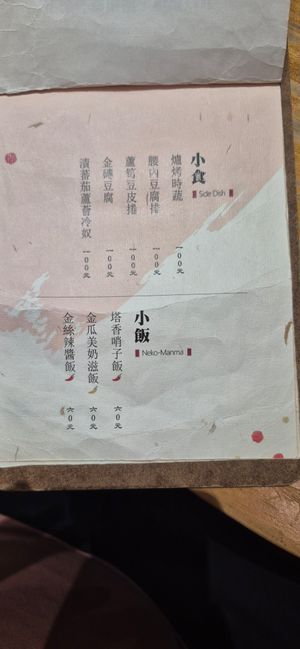 小食
Side Dish
爐烤時蔬 一00元
腰內豆腐排 一00元
蘆筍豆皮捲 一00元
金磚豆腐 一00元
漬蕃茄蘆薈冷奴 一00元
小飯
Neko-Manma
塔香哨子飯 六0元
金瓜美奶滋飯 六0元
金絲辣醬飯 六0元